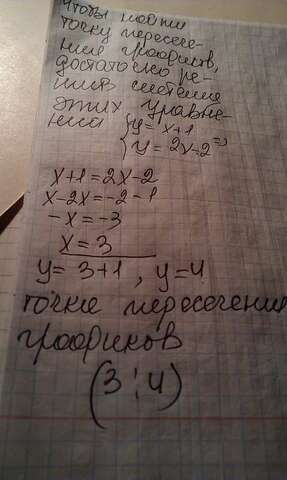 Чтобы найти
точку пересече-
ния графиков,
достаточно ре-
шить систему
этих уравне-
ния {y = x+1
{y = 2x-2 =>
x+1=2x-2
x-2x=-2-1
-x=-3
x=3
y= 3+1, y=4
точке пересечения
графиков
(3;4)